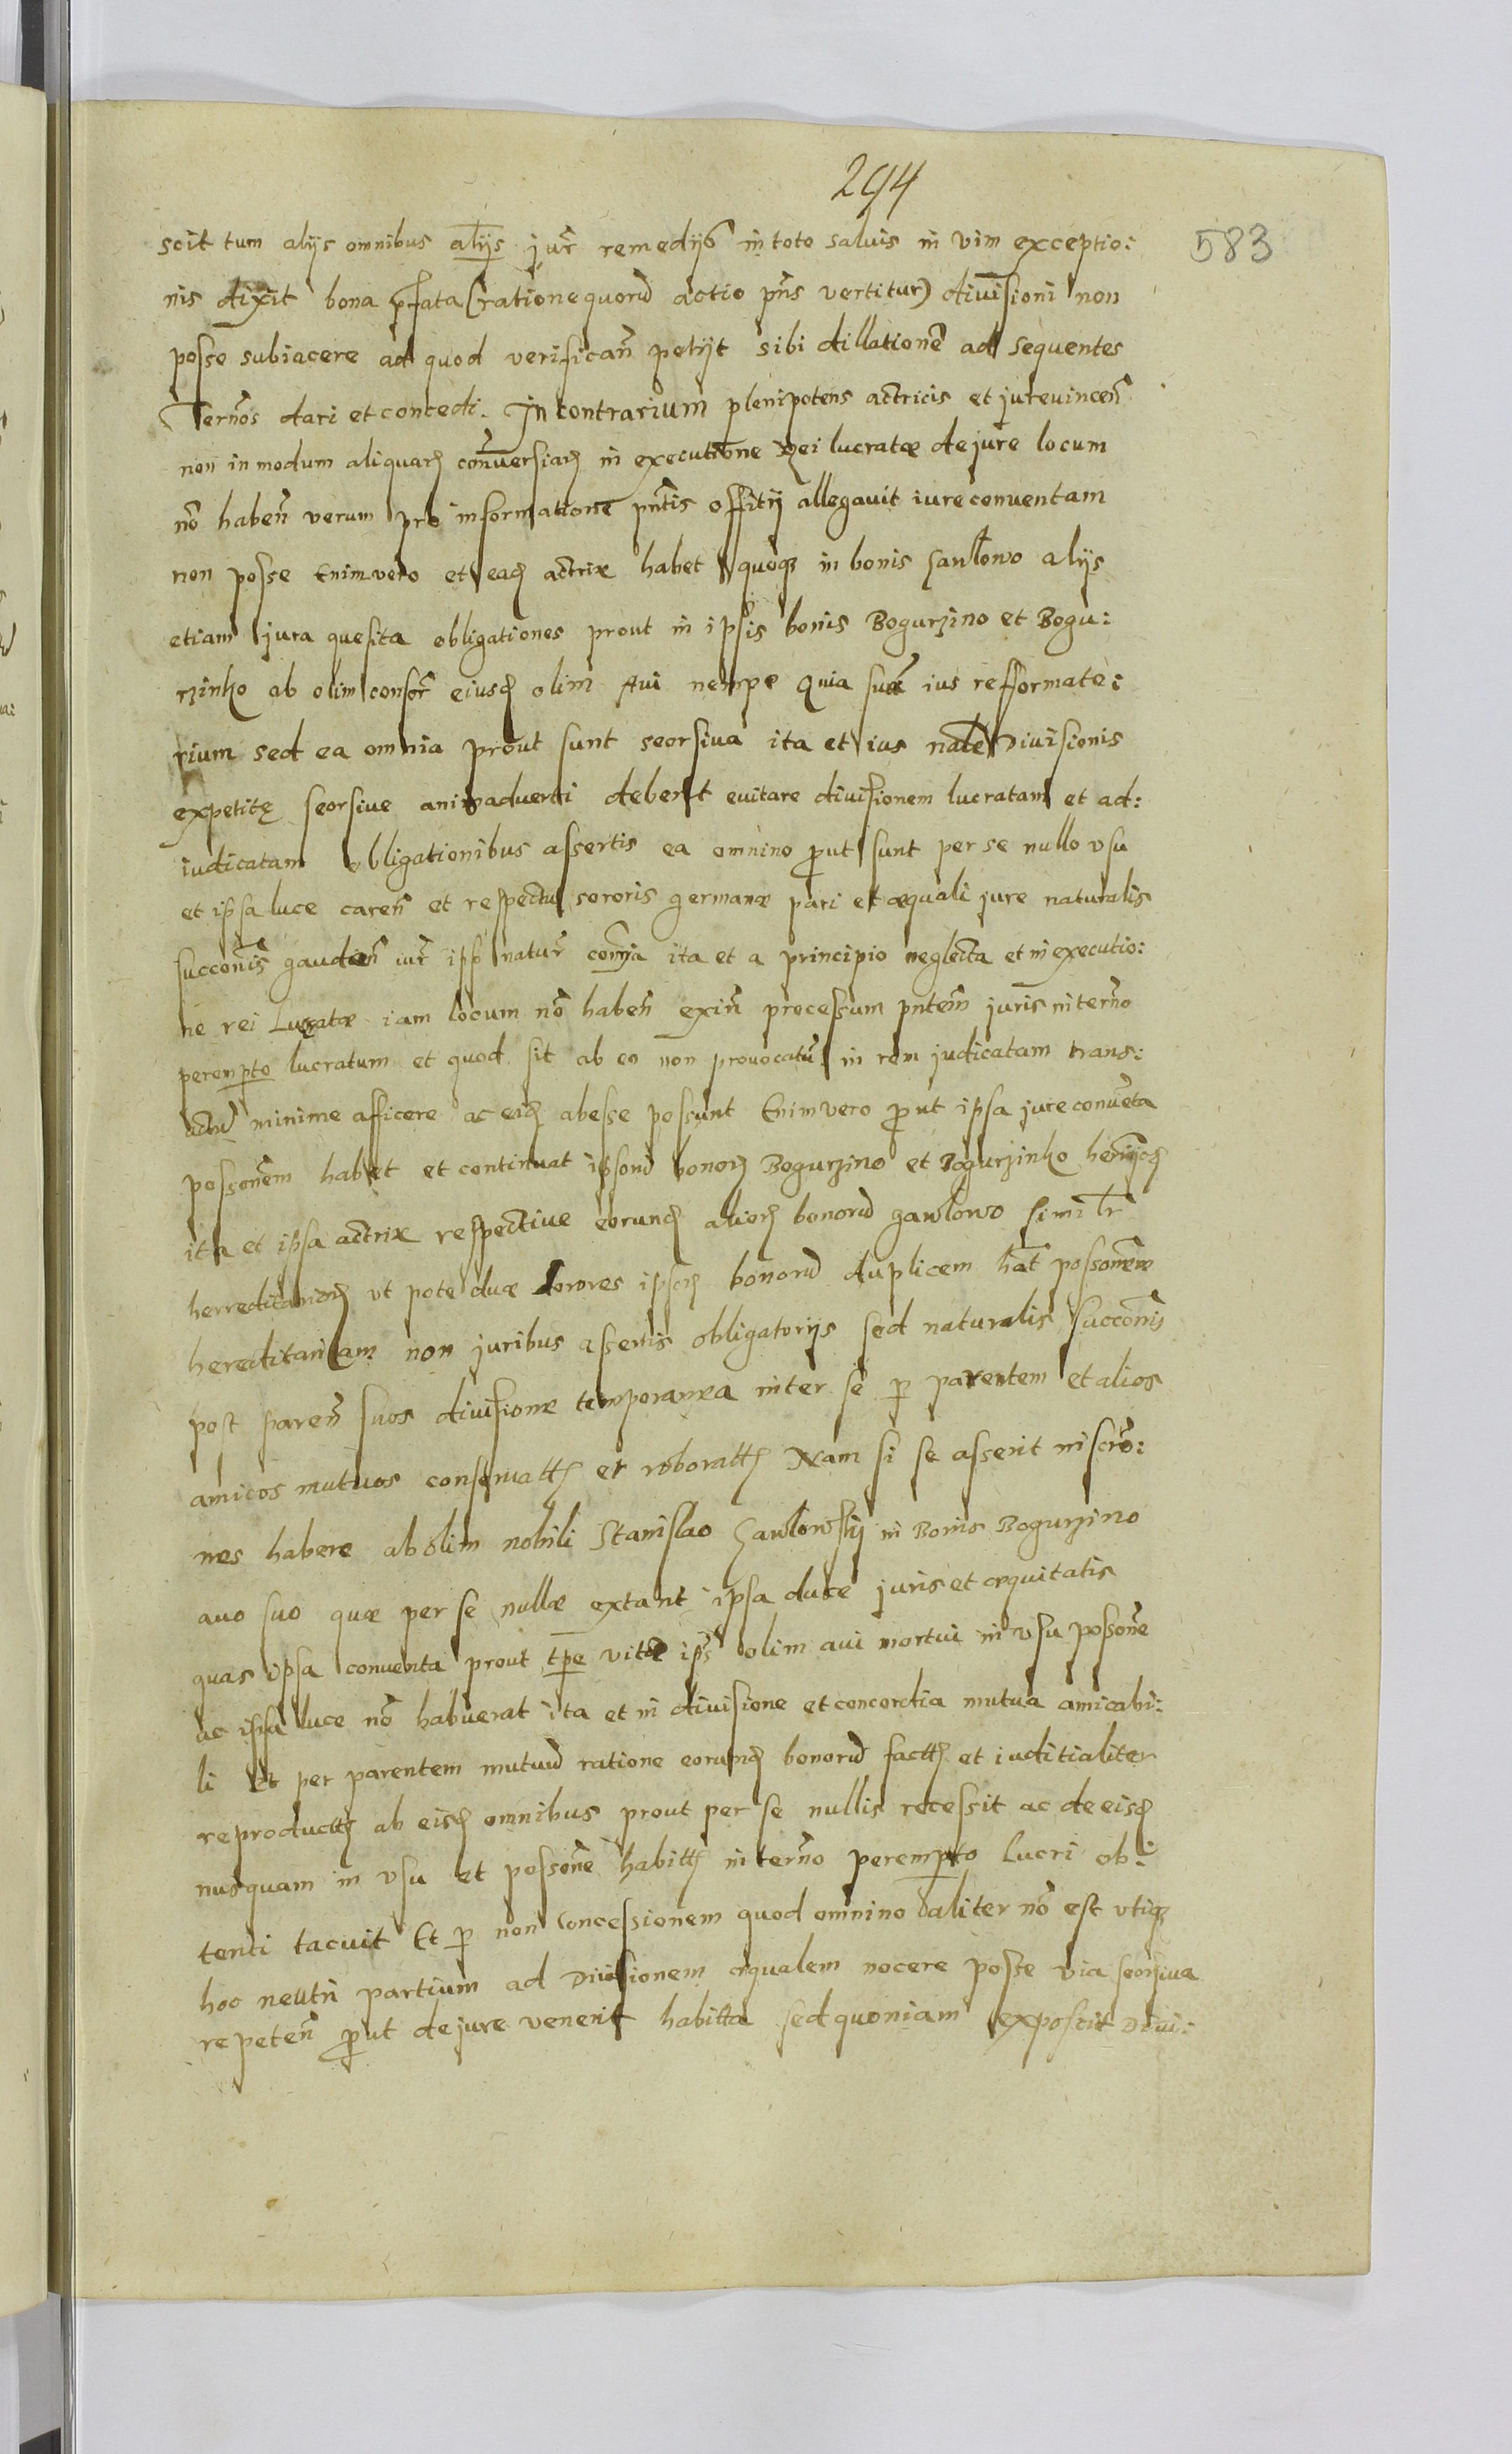 294
583
scit tum alijs omnibus alijs jur̄ remedijs in toto saluis in vim exceptio:
nis dixit bona p̄fata (ratione quorū actio pn̄s vertitur) diuisioni non
posse subiacere ad quod verifican̄ petijt sibi dillationē ad sequentes
Tern̄os dari et concedi. In contrarium plenipotens actricis et jureuincen̄
non in modum aliquarū conuersiarū in executione Rei lucratæ de jure locum
nō haben̄ verum pro informatione pn̄tis offitij allegauit iure conuentam
non posse Enimvero et eadē actrix habet quoqȝ in bonis Gawlowo alijs
etiam jura quesita obligationes prout in ipsis bonis Bogurzino et Bogu:
rzinko ab olim consor̄ eiusdē olim Aui nempe quia suæ ius refformato:
rium sed ea omnia prout sunt seorsiua ita et ius nat̄le Diuisionis
expetitę seorsiue animaduerti debent euitare diuisionem lucratam et ad:
iudicatam obligationibus assertis ea omnino p̄ut sunt per se nullo vsu
et ipsa luce caren̄ et respectu sororis germanæ pari et æquali jure naturalis
succon̄is gauden̄ iur̄ ipso natur̄ con̄ia ita et a principio neglecta et in executio:
ne rei Lucratæ iam locum nō haben̄ exin̄ processum pn̄tem juris in tern̄o
perempto lucratum et quod sit ab eo non prouocatū in rem judicatam trans:
actū minime afficere ac eidē abesse possunt Enimvero p̄ut ipsa jure conuēta
posson̄em habet et continuat ipsorū bonorū Bogurzino et Bogurzinko
ita et ipsa actrix respectiue eorundē aliorū bonorū gawlowo simil̄r
herreditariorū vt pote duæ sorores ipsorū bonorū duplicem hāt posson̄em
hereditariam non juribus assertis obligatorijs sed naturalis succon̄is
post paren̄ suos diuisione temporanea inter se p̄ parentem et alios
amicos mutuos conseruatt et roboratt Nam si se asserit inscrō:
nes habere ab olim nobili Stanislao Gawlowskij in Bonis Bogurzino
auo suo quæ per se nullæ extant ipsa duce juris et æquitatis
quas ipsa conuenta prout tp̄e vitæ ips̄ olim aui mortui in vsu posson̄e
ac ipsa luce nō habuerat ita et in diuisione et concordia mutua amicabi:
li Et per parentem mutuū ratione eorundē bonorū factt et iuditialiter
reproductt ab eisdē omnibus prout per se nullis recessit ac de eisdē
nusquam in vsu et posson̄e habitt in tern̄o perempto Lucri ob:
tenti tacuit Et p̄ non concessionem quod omnino aliter nō est vtiqȝ
hoc neutri partium ad Diuisionem æqualem nocere posse via seorsiua
repeten̄ p̄ut de jure venerit habitta sed quoniam exposcit Diui: